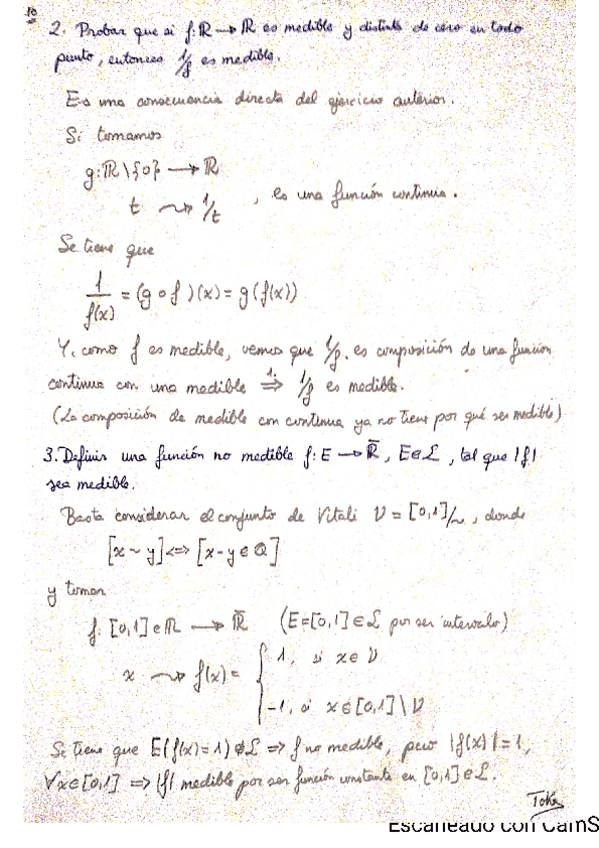 10
2. Probar que si f: ℝ → ℝ es medible y distinta de cero en todo
punto, entonces 1/f es medible.
Es una consecuencia directa del ejercicio anterior.
Si tomamos
g: ℝ \ {0} → ℝ
t ⇝ 1/t , es una función continua.
Se tiene que
1/f(x) = (g ∘ f)(x) = g(f(x))
Y, como f es medible, vemos que 1/f es composición de una función
continua con una medible ⇒ (1.) 1/f es medible.
(La composición de medible con continua ya no tiene por qué ser medible)
3. Definir una función no medible f: E → ℝ̄, E ∈ ℒ, tal que |f|
sea medible.
Basta considerar el conjunto de Vitali V = [0,1]/~, donde
[x ~ y] <=> [x-y ∈ ℚ]
y tomar
f: [0,1] ∈ ℝ → ℝ̄ (E=[0,1] ∈ ℒ por ser intervalo)
x ⇝ f(x) = { 1, si x ∈ V
-1, si x ∈ [0,1] \ V
Se tiene que E(f(x)=1) ∉ ℒ => f no medible, pero |f(x)|=1,
∀x∈[0,1] => |f| medible por ser función constante en [0,1] ∈ ℒ.
Escaneado con CamS